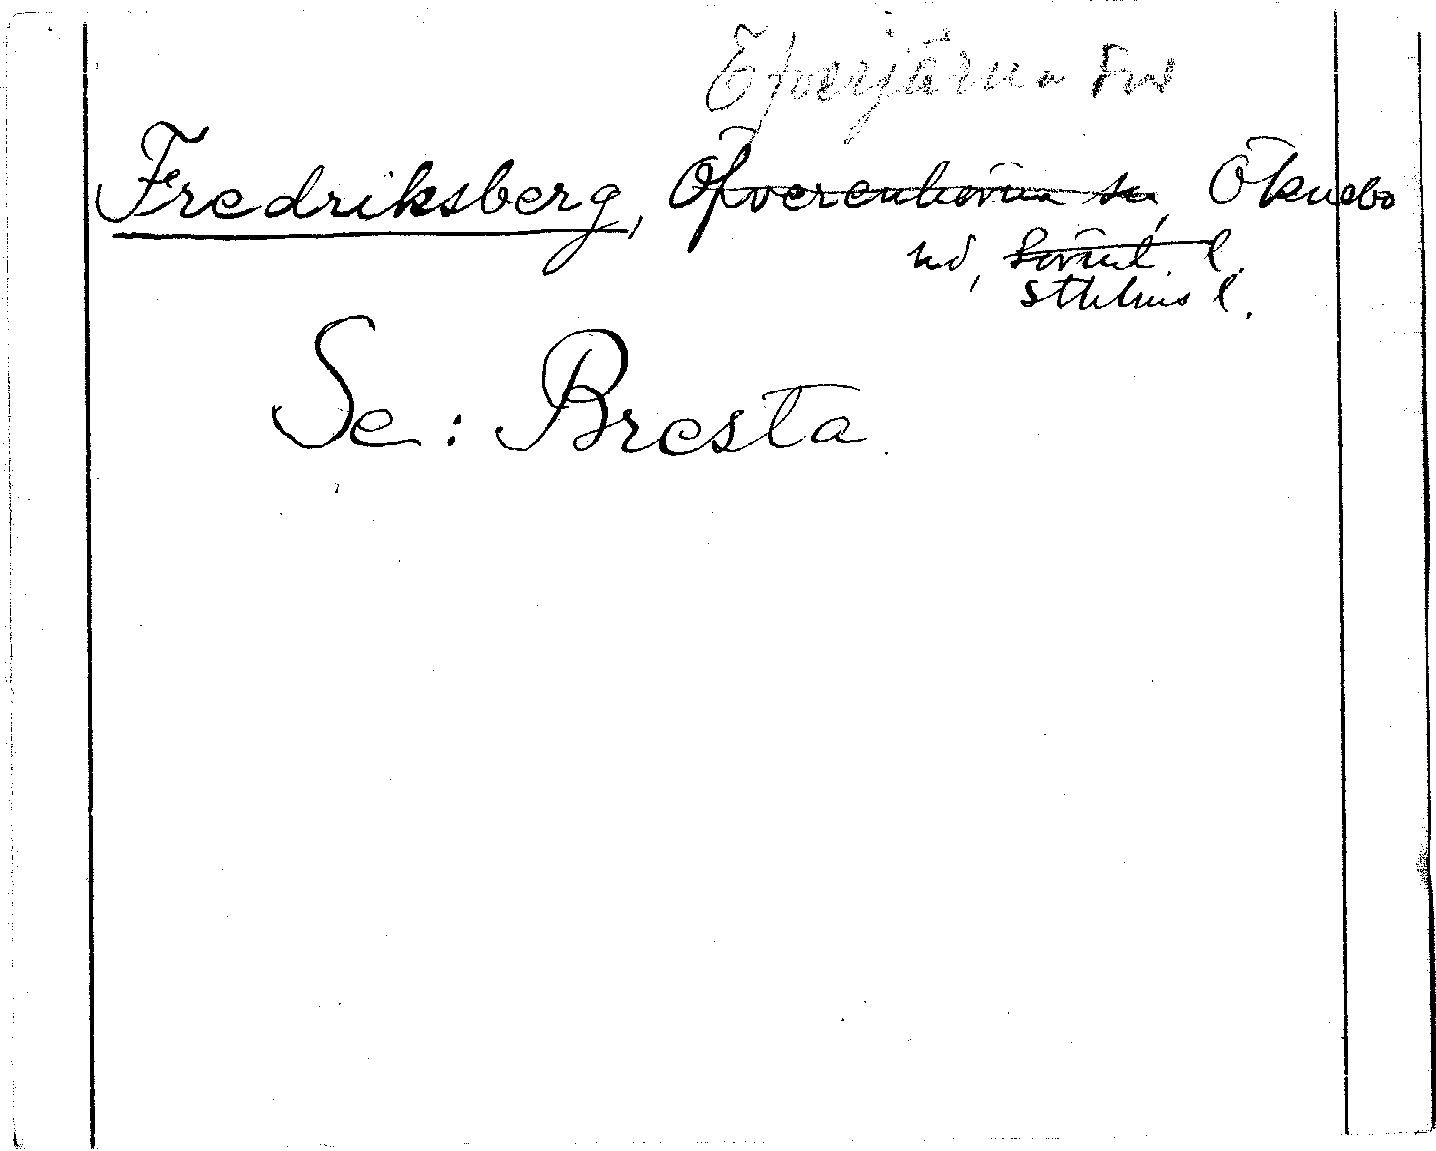 Öfverjärna sn
Fredriksberg, Öfverenhörna sn, Öknebo
hd, Sörml. l.
Sthlms l.
Se: Bresta